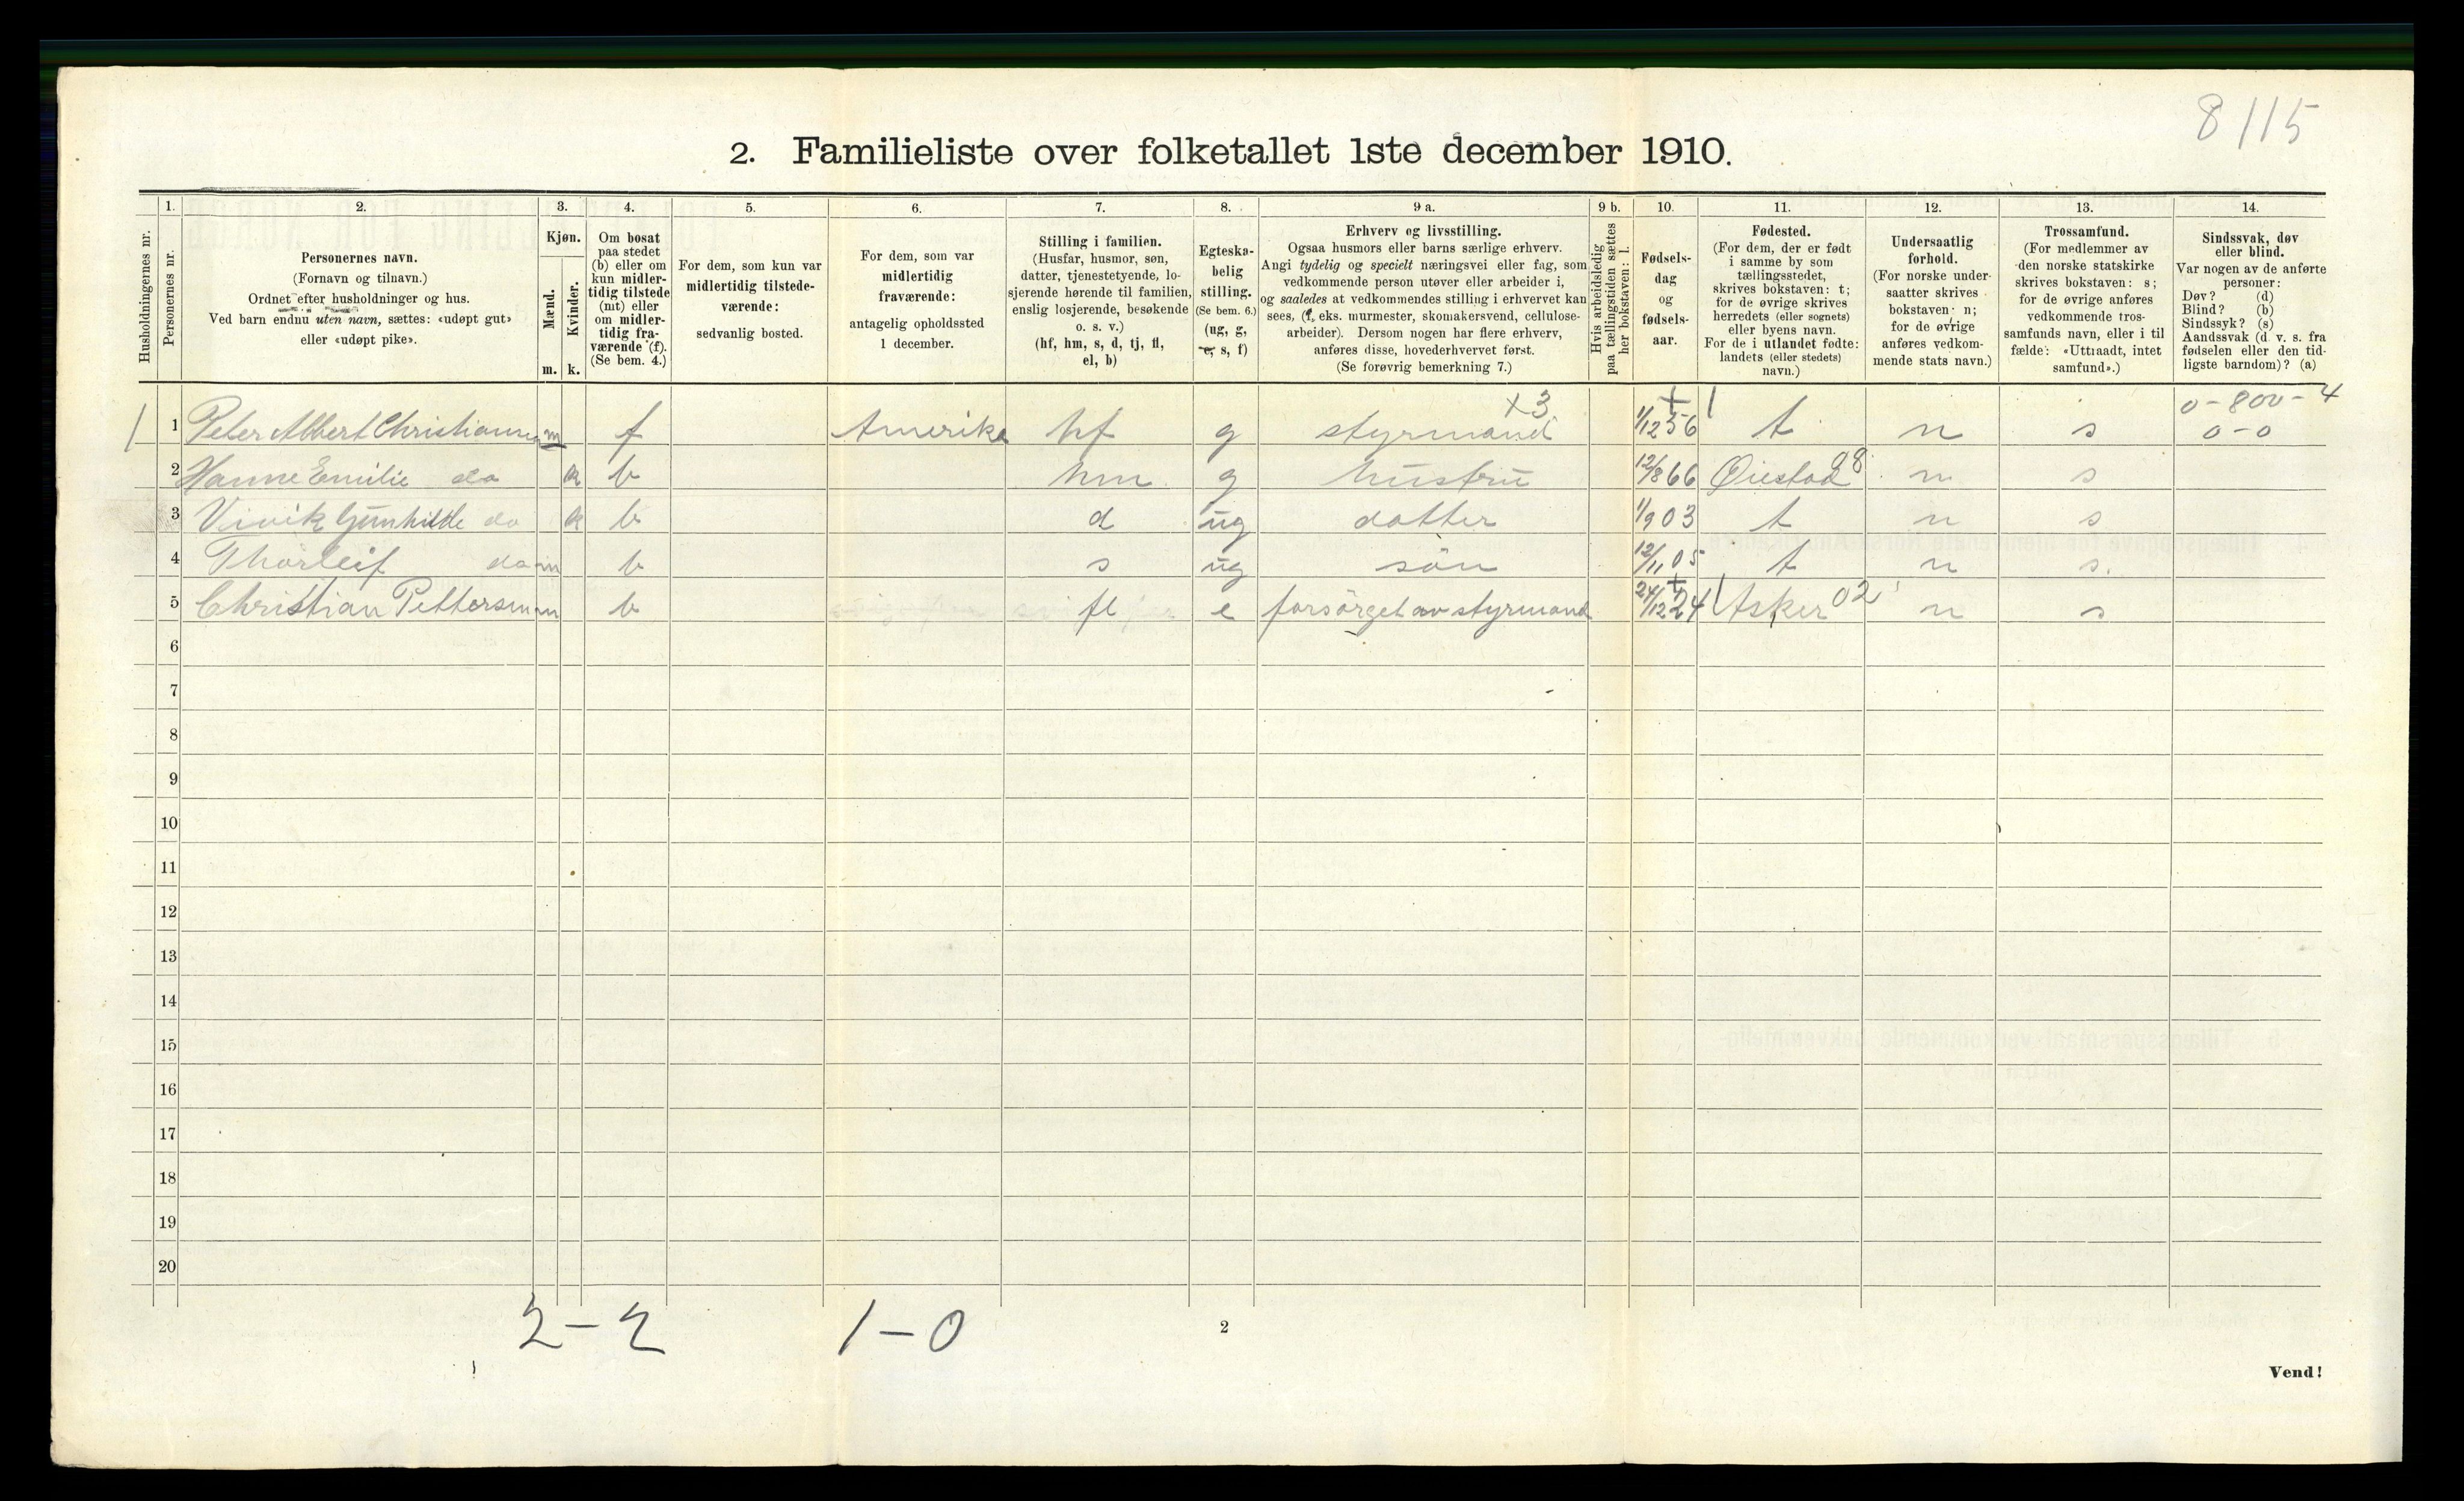 8115
2. Familieliste over folketallet 1ste december 1910.
1. 2. 3. 4. 5. 6. 7. 8. 9 a. 9 b. 10. 11. 12. 13. 14.
Husholdningernes nr.
Personernes nr.
Personernes navn.
(Fornavn og tilnavn.)
Ordnet efter husholdninger og hus.
Ved barn endnu uten navn, sættes: «udøpt gut»
eller «udøpt pike».
Kjøn.
Mænd.
Kvinder.
m. k.
Om bosat
paa stedet
(b) eller om
kun midler-
tidig tilstede
(mt) eller
om midler-
tidig fra-
værende (f).
(Se bem. 4.)
For dem, som kun var
midlertidig tilstede-
værende:
sedvanlig bosted.
For dem, som var
midlertidig
fraværende:
antagelig opholdssted
1 december.
Stilling i familien.
(Husfar, husmor, søn,
datter, tjenestetyende, lo-
sjerende hørende til familien,
enslig losjerende, besøkende
o. s. v.)
(hf, hm, s, d, tj, fl,
el, b)
Egteska-
belig
stilling.
(Se bem. 6.)
(ug, g,
e, s, f)
Erhverv og livsstilling.
Ogsaa husmors eller barns særlige erhverv.
Angi tydelig og specielt næringsvei eller fag, som
vedkommende person utøver eller arbeider i,
og saaledes at vedkommendes stilling i erhvervet kan
sees, (f. eks. murmester, skomakersvend, cellulose-
arbeider). Dersom nogen har flere erhverv,
anføres disse, hovederhvervet først.
(Se forøvrig bemerkning 7.)
Hvis arbeidsledig
paa tællingstiden sættes
her bokstaven: l.
Fødsels-
dag
og
fødsels-
aar.
Fødested.
(For dem, der er født
i samme by som
tællingsstedet,
skrives bokstaven: t;
for de øvrige skrives
herredets (eller sognets)
eller byens navn.
For de i utlandet fødte:
landets (eller stedets)
navn.)
Undersaatlig
forhold.
(For norske under-
saatter skrives
bokstaven: n;
for de øvrige
anføres vedkom-
mende stats navn.)
Trossamfund.
(For medlemmer av
den norske statskirke
skrives bokstaven: s;
for de øvrige anføres
vedkommende tros-
samfunds navn, eller i til-
fælde: «Uttraadt, intet
samfund».)
Sindssvak, døv
eller blind.
Var nogen av de anførte
personer:
Døv? (d)
Blind? (b)
Sindssyk? (s)
Aandssvak (d. v. s. fra
fødselen eller den tid-
ligste barndom)? (a)
x3 + 1 0-800-4
1 1 Peter Albert Christiansen m f Amerika hf g styrmand 1/12 56 t n s 0-0
2 Hanne Emilie do k b hm g hustru 12/8 66 Øiestad 98 n s
3 Vivik Gunhilde do k b d ug datter 1/9 03 t n s
4 Thorleif do m b s ug sön 12/11 05 t n s.
5 Christian Pettersen m b fl e forsörget av styrmand 24/12 24 Asker 02 n s
6
7
8
9
10
11
12
13
14
15
16
17
18
19
20
2-2 1-0
2
Vend!